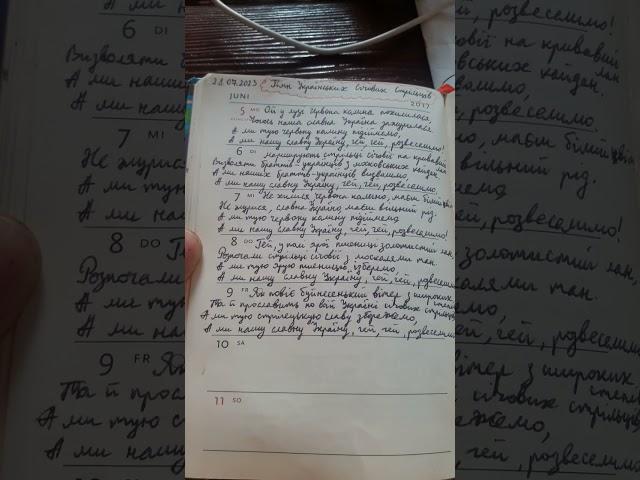 21.07.2023 Гімн Українських Січових Стрільців
JUNI 2017
5 MO Ой у лузі червона калина похилилася,
Чогось наша славна Україна зажурилася.
А ми тую червону калину підіймемо,
А ми нашу славну Україну, гей, гей, розвеселимо!
6 DI Марширують стрільці січові на кривавий тан
Визволяти братів-українців з московських кайдан.
А ми наших братів-українців визволимо,
А ми нашу славну Україну, гей, гей, розвеселимо.
7 MI Не хилися червона калино, маєш білий цвіт
Не журися, славна Україно маєш вільний рід.
А ми тую червону калину підіймемо
А ми нашу славну Україну, гей, гей, розвеселимо!
8 DO Гей, у полі ярої пшениці золотистий лан,
Розпочали стрільці січові з москалями тан.
А ми тую ярую пшеницю зберемо,
А ми нашу славну Україну, гей, гей, розвеселимо
9 FR Як повіє буйнесенький вітер з широких степів
Та й прославить по всій Україні січових стрільців
А ми тую стрілецькую славу збережемо,
А ми нашу славну Україну, гей, гей, розвеселимо
10 SA
11 SO